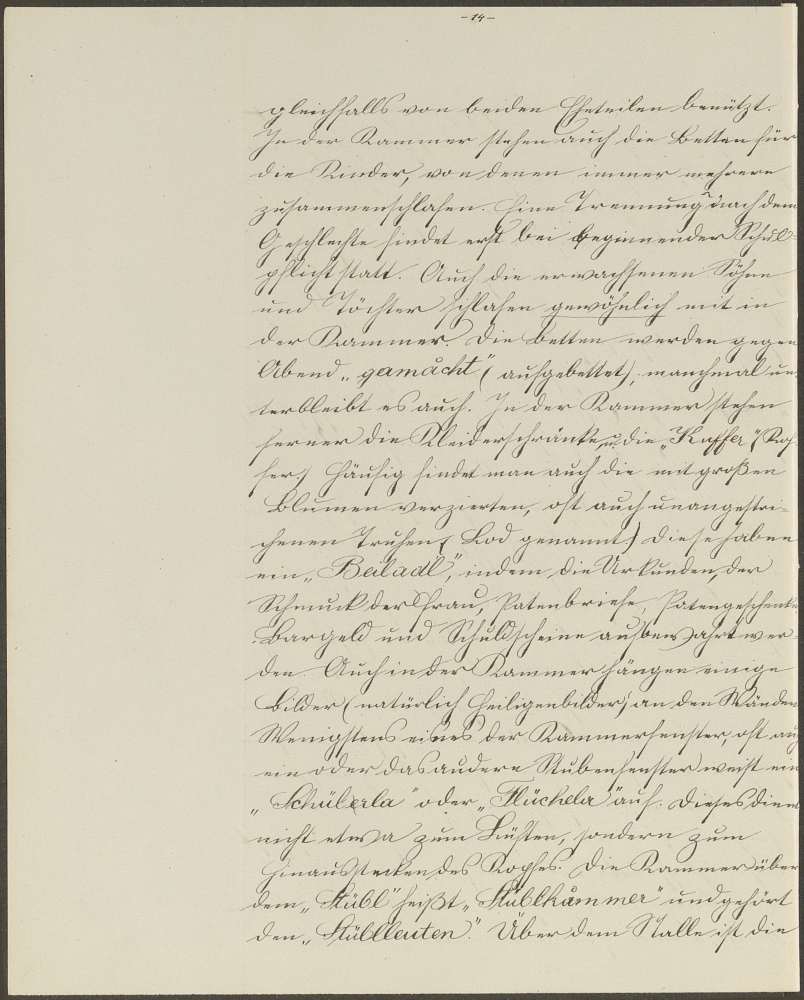 -14-
gleichfalls von beiden Eheteilen benützt.
In der Kammer stehen auch die Betten für
die Kinder, von denen immer mehrere
zusammenschlafen. Eine Trennung nach dem
Geschlechte findet erst bei beginnender Schul-
pflicht statt. Auch die erwachsenen Söhne
und Töchter schlafen gewöhnlich mit in
der Kammer. Die Betten werden gegen
Abend „gamåcht" (aufgebettet), manchmal un-
terbleibt es auch. In der Kammer stehen
ferner die Kleiderschränke u. die „Kuffer" (Kof
fer.) Häufig findet man auch die mit großen
Blumen verzierten, oft auch unangestri-
chenen Truhen (Lod genannt.) Diese haben
ein „Beiladl", indem die Urkunden, der
Schmuck der Frau, Patenbriefe, Patengeschenke
Bargeld und Schuldscheine aufbewahrt wer-
den. Auch in der Kammer hängen einige
Bilder (natürlich Heiligenbilder) an den Wänden
Wenigstens eines der Kammerfenster, oft auch
ein oder das andere Stubenfenster weist ein
„Schüberla" oder „Flüchela" auf. Dieses dient
nicht etwa zum Lüften, sondern zum
Hinausstecken des Kopfes. Die Kammer über
dem „Stübl" heißt „Stüblkåmmer" und gehört
den „Stüblleuten." Über dem Stalle ist die